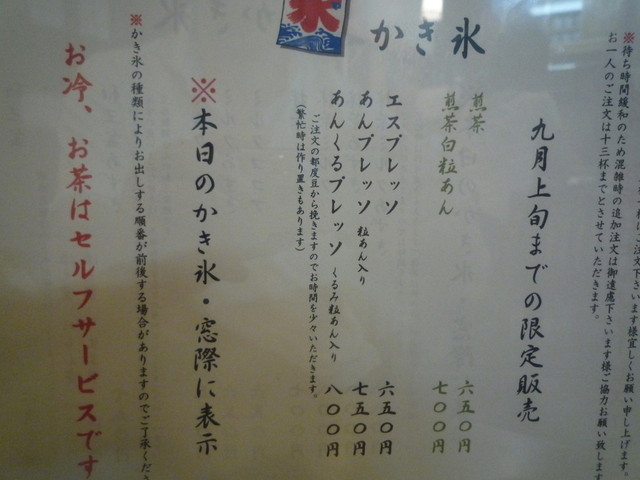 にご注文下さいます様宜しくお願い申し上げます。
※待ち時間緩和のため混雑時の追加注文は御遠慮下さいます様ご協力お願い致します
お一人のご注文は十三杯までとさせていただきます。
氷
かき氷
九月上旬までの限定販売
煎茶 六五〇円
煎茶白粒あん 七〇〇円
エスプレッソ 六五〇円
あんプレッソ 粒あん入り 七五〇円
あんくるプレッソ くるみ粒あん入り 八〇〇円
ご注文の都度豆から挽きますのでお時間を少々いただきます。
(繁忙時は作り置きもあります)
※本日のかき氷・窓際に表示
※かき氷の種類によりお出しする順番が前後する場合がありますのでご了承くださ
お冷、お茶はセルフサービスです